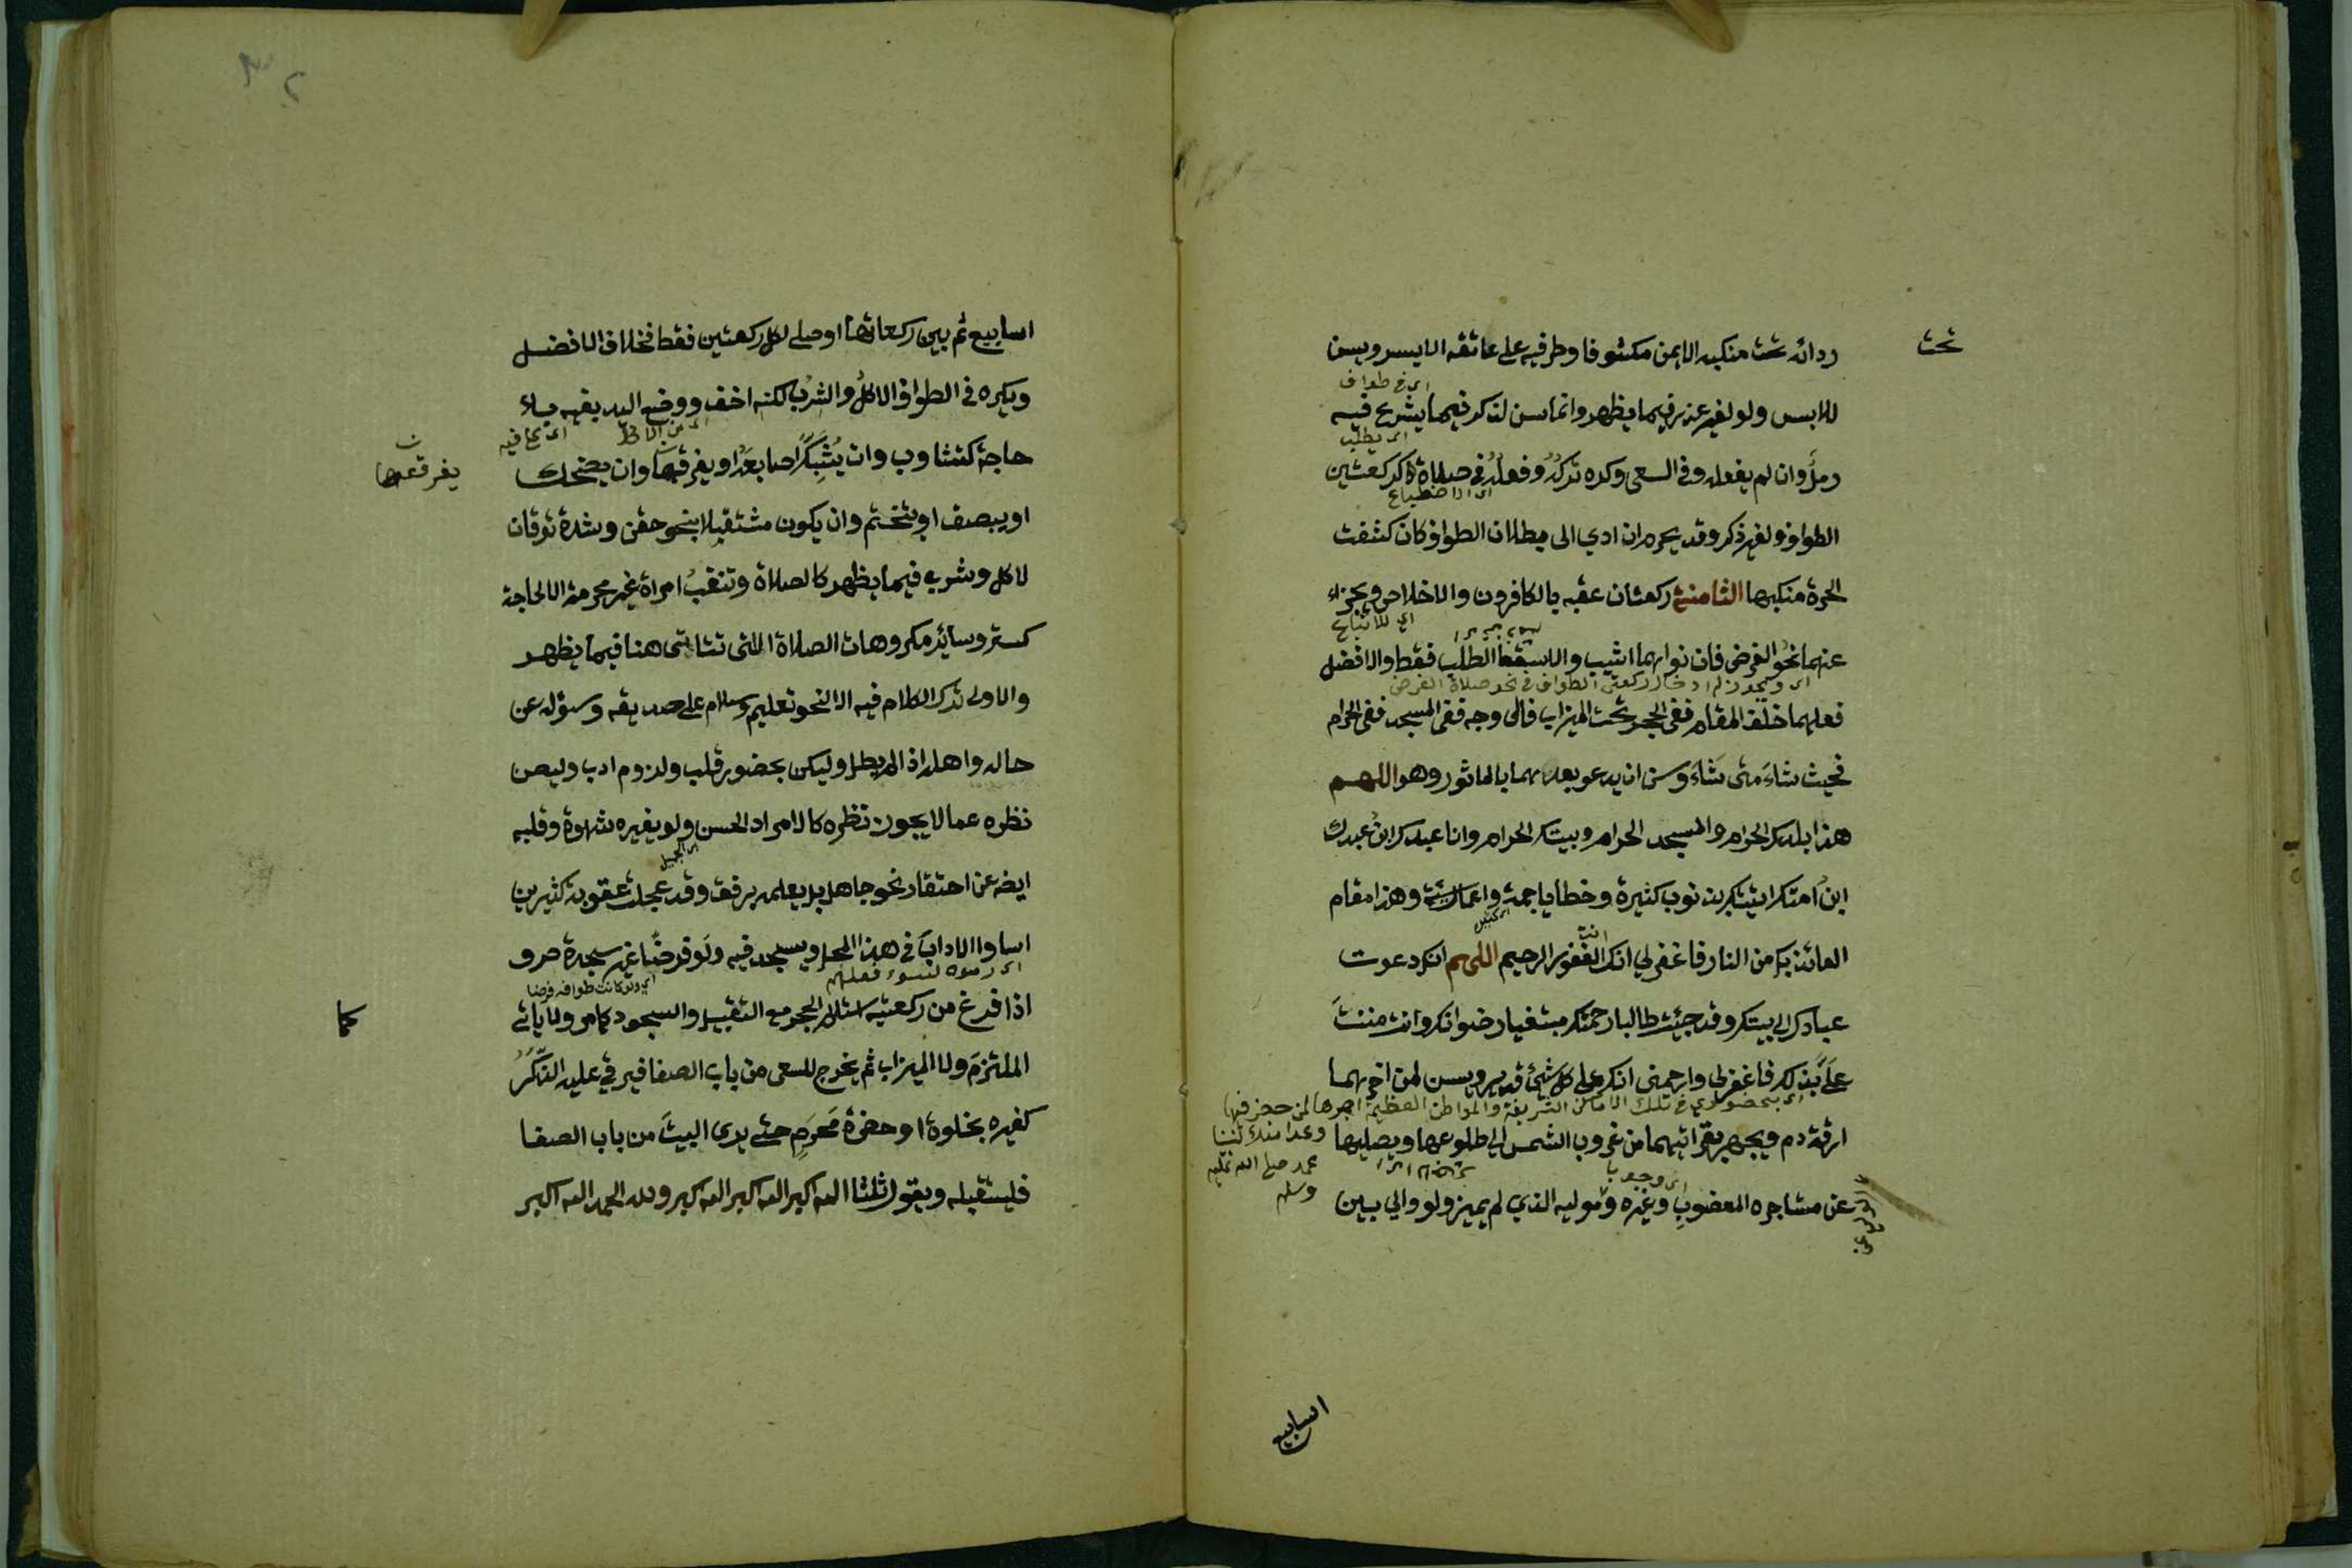 تحت
ردائه تحت منكبه الايمن مكشوفا وطرفيه على عاتقه الايسر ويسن
اي في طواف
للابس ولو لغير عذر فيما يظهر وانما سن لذكر فيما يشرع فيه
اي يطلب
رمل وان لم يفعله وفي السعي وكره تركه وفعله في صلاة كركعتين
اي الاضطباع
الطواف ولغير ذكر وقد يحرم ان ادي الى بطلان الطواف كان كشفت
الحرة منكبها الثامنة ركعتان عقبه بالكافرون والاخلاص ويجزاء
اي للاتباع
عنهما نحو الفرض فان نواهما اثيب والا سقط الطلب فقط والافضل
اي ويجوز له ادخال ركعتي الطواف في نحو صلاة الفرض
فعلهما خلف المقام ففي الحجر تحت الميزاب فالى وجه ففي المسجد ففي الحرام
فحيث شاء متى شاء وسن ان يدعو بعدهما بالماثور وهو اللهم
هذا بلدك الحرام والمسجد الحرام وبيتك الحرام وانا عبدك ابن عبدك
ابن امتك اتيتك بذنوب كثيرة وخطايا جمة واعمال سيئة وهذا مقام
اي كثير
العائذ بك من النار فاغفر لي انك انت الغفور الرحيم اللهم انك دعوت
عبادك الى بيتك وقد جئت طالبا رحمتك مبتغيا رضوانك وانت مننت
علي بذلك فاغفر لي وارحمني انك على كل شئ قدير ويسن لمن اخرهما
اي بحضوري في تلك الاماكن الشريفة والمواطن العظيمة اجرها لمن حضر فيها
اراقة دم ويجهر بقراتهما من غروب الشمس الى طلوعها ويصليها
وعدا منك لنبينا
محمد صلى الله عليه
وسلم
اي وجوبا
عن مستاجره المعضوب وغيره وموليه الذي لم يميز ولو والى بين
اسابيع
٣٢
اسابيع ثم بين ركعاتها او صلى لكل ركعتين فقط فخلاف الافضل
ويكره في الطواف الاكل والشرب لكنه اخف ووضع اليد بفيه بلا
حاجة كتثاوب وان يشبك اصابعه او يفرقعها وان يضحك
يفرقعها ن
او يبصق او يتختم وان يكون مشتقبلا بنحو حقن وشدة توقان
لاكل وشرب فيما يظهر كالصلاة وتنقب امراة غير محرمة الا لحاجة
كستر وسائر مكروهات الصلاة اللتي تتاتى هنا فيما يظهر
والاولى ترك الكلام فيه الا لنحو تعليم وسلام على صديقه وسؤله عن
حاله واهله اذا لم يطل وليكن بحضور قلب ولزوم ادب وليصن
نظره عما لا يجوز نظره كالامراد الحسن ولو بغيره شهوة وقلبه
اي الجميل
ايضه عن احتقار نحو جاهل بل يعلمه برفق وقد عجلت عقوبة كثيرين
اساوا الاداب في هذا المحل ويسجد فيه ولو فرضا غير سجدة ص و
اي ولو كانت طوافه فرضا
اذا فرغ من ركعتيه استلام الحجر مع التقبيل والسجود كما مر ولا ياتي
كما
الملتزم ولا الميزاب ثم يخرج للسعي من باب الصفا فيرقي عليه الذكر
كغيره بخلوة او حضرة محرم حتى يرى البيت من باب الصفا
فليستقبله ويقول ثلثا الله اكبر الله اكبر الله اكبر ولله الحمد الله اكبر